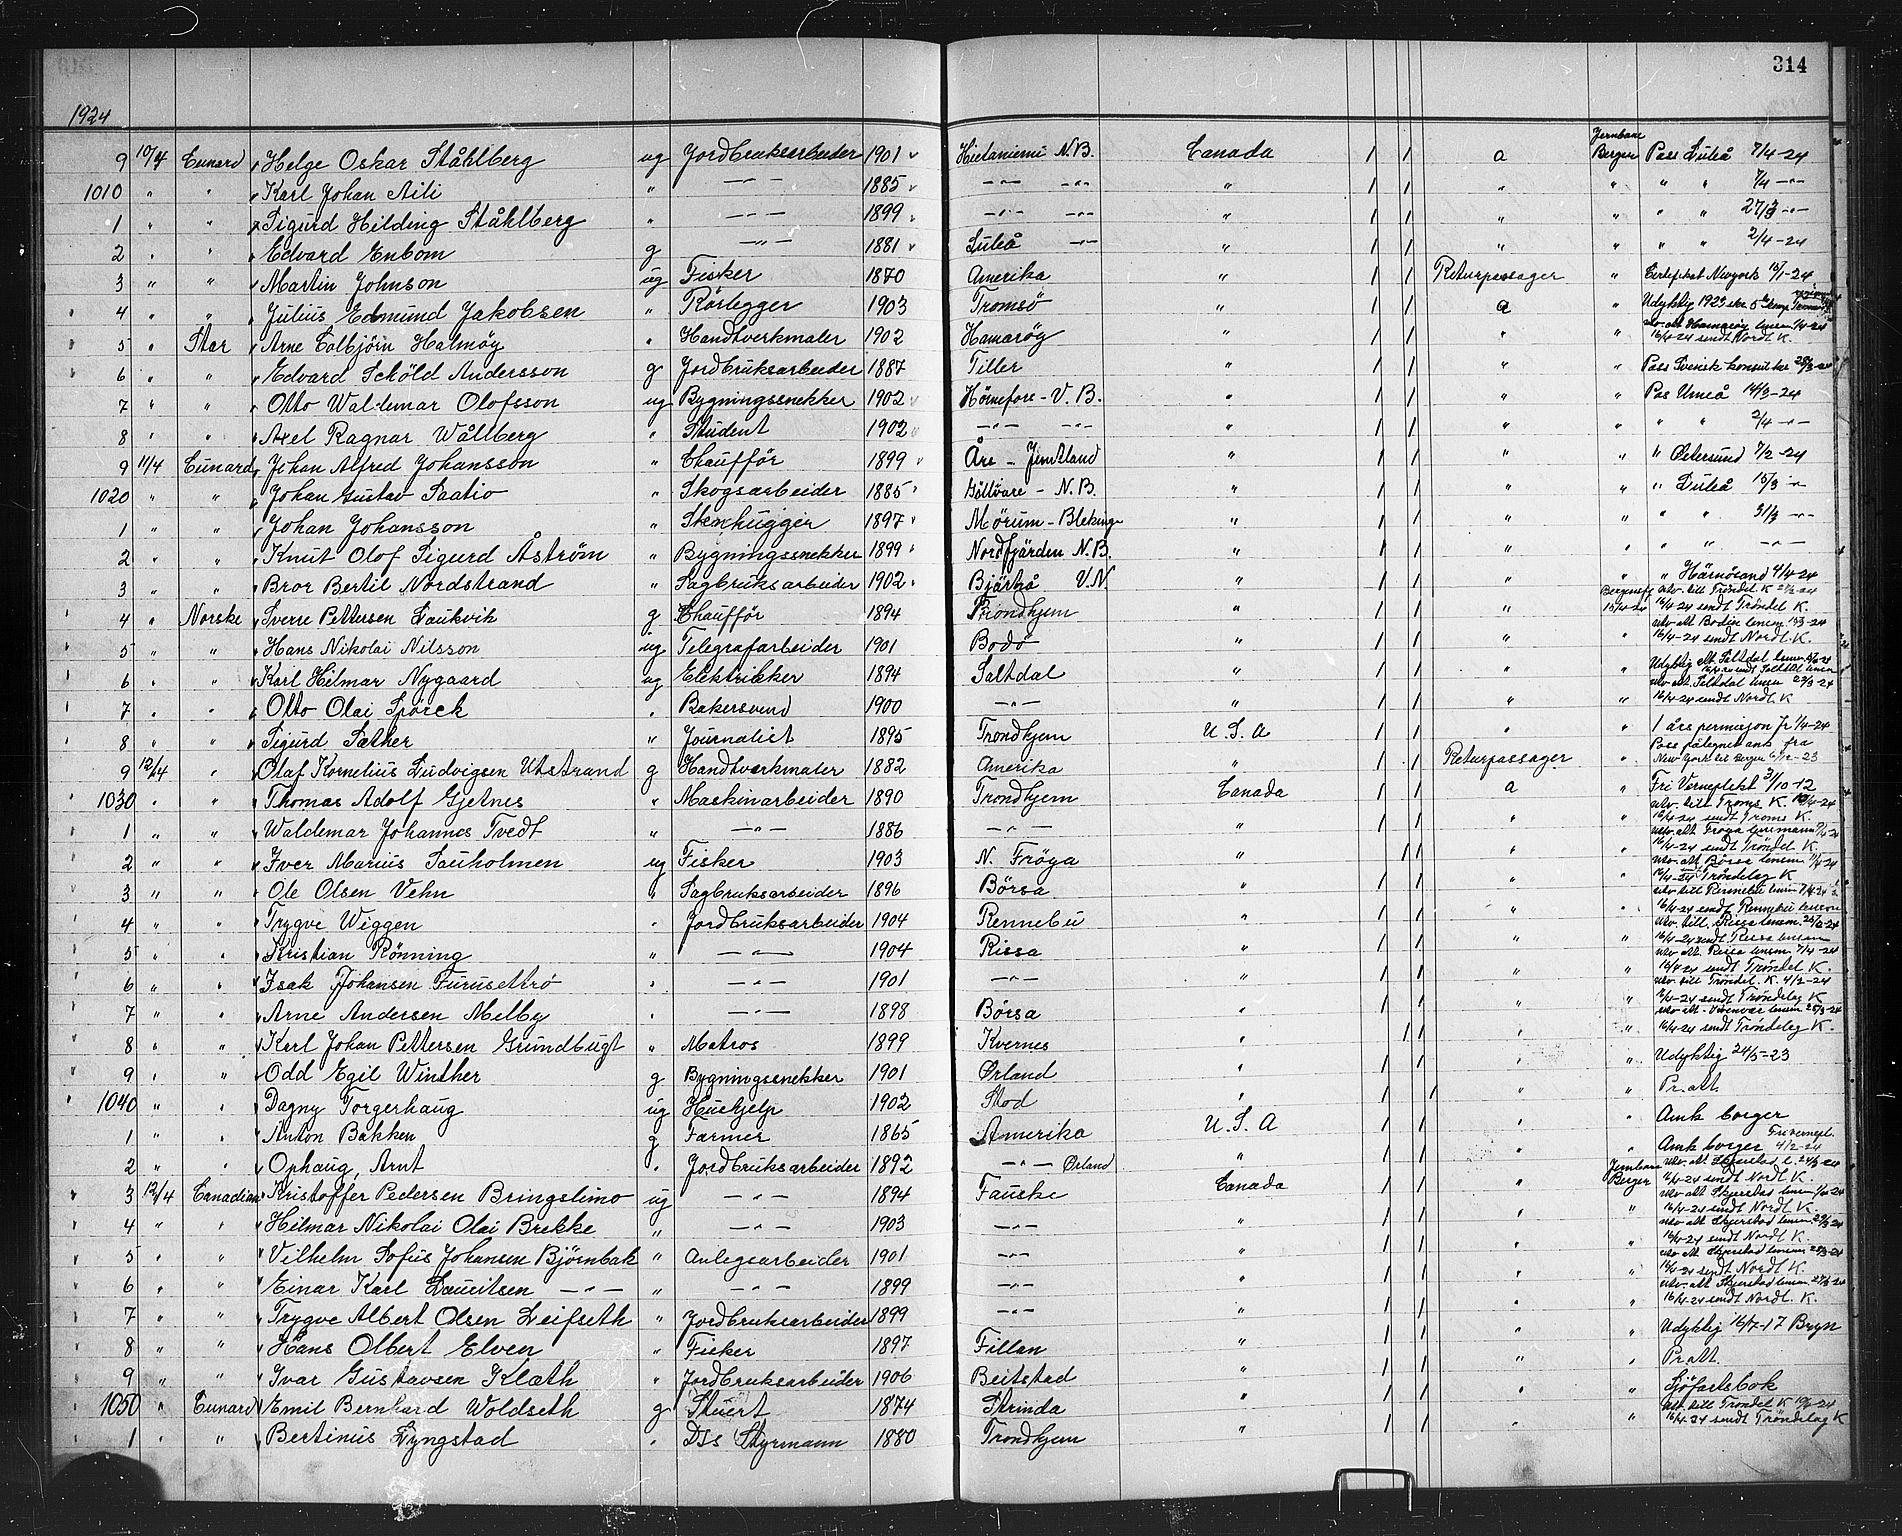 314
1924
9 10/4 Cunard Helge Oskar Ståhlberg ug Jordbruksarbeider 1901 Hietaniemi N.B. Canada 1 1 a Jernbane Bergen Pass Luleå 7/4-24
1010 " " Karl Johan Aili " —"— 1885 —"— —"— " 1 1 " " " " 7/4 —"—
1 " " Sigurd Hilding Ståhlberg " —"— 1899 —"— —"— " 1 1 " " " " 27/3 —"—
2 " " Edvard Enbom g —"— 1881 Luleå —"— " 1 1 " " " " 2/4-24
3 " " Martin Johnson ug Fisker 1870 Amerika " 1 1 Returpassager " Certifikat Newyork 16/1-24
4 " " Julius Edmund Jakobsen " Rørlegger 1903 Tromsö " 1 1 a " Udyktig 1923
5 " Star Arne Colbjörn Halmöy " Handtverkmaler 1902 Hamarøy " 1 1 " " utv. att Hamarøy lensm 1/4-24 16/4-24 sendt Nordl K.
6 " " Edvard Schöld Andersson g Jordbruksarbeider 1887 Tiller " 1 1 " " Pass Svensk konsul
7 " " Otto Waldemar Olofsson ug Bygningssnekker 1902 Hörnefors - V.B. " 1 1 " " Pas Umeå 14/3-24
8 " " Axel Ragnar Wållberg " Student 1902 —"— —"— " 1 1 " " " " 2/4 —"—
9 11/4 Cunard Johan Alfred Johansson " Chaufför 1899 Åre - Jemtland " 1 1 " " " Østersund 7/2-24
1020 " " Johan Gustav Saatio " Skogsarbeider 1885 Gällivare - N.B. " 1 1 " " " Luleå 15/3 —"—
1 " " Johan Johansson " Stenhugger 1897 Mörum - Blekinge " 1 1 " " " " 31/3 —"—
2 " " Knut Olof Sigurd Åström " Bygningssnekker 1899 Nordfjärden N.B. " 1 1 " " " " —"—
3 " " Bror Bertil Nordstrand " Sagbruksarbeider 1902 Bjärtrå V.N. " 1 1 " " " Härnösand 4/4-24
4 " Norske Sverre Pettersen Laukvik g Chaufför 1894 Trondhjem " 1 1 " Bergensfj 15/4-24 utv. till Tröndel. K 21/2-24 16/4-24 sendt Tröndel K.
5 " " Hans Nikolai Nilsson ug Telegrafarbeider 1901 Bodö " 1 1 " " utv att Bodin lensm 19/3-24 16/4-24 sendt Nordl. K.
6 " " Karl Hilmar Nygaard ug Elektrikker 1894 Saltdal " 1 1 " " Udyktig att Saltdal lensm
7 " " Otto Olai Spörck " Bakersvend 1900 —"— " 1 1 " " utv att. Saltdal lensm 23/3-24 16/4-24 sendt Nordl K
8 " " Sigurd Sæther " Journalist 1895 Trondhjem U.S.A 1 1 " " 1 års permisjon fr 1/4-24
9 12/4 " Olaf Kornelius Ludvigsen Utstrand g Handtverkmaler 1882 Amerika " 1 1 Returpassager " Pass påtegnet ank fra New York til Bergen 6/12-23
1030 " " Thomas Adolf Gjetnes " Maskinarbeider 1890 Trondhjem Canada 1 1 a " Fri Vernepligt 3/10-12
1 " " Waldemar Johannes Tvedt " —"— 1886 —"— " 1 1 " " utv. till Troms K. 10/4-24 16/4-24 sendt Troms K.
2 " " Iver Marius Sauholmen ug Fisker 1903 N. Fröya " 1 1 " " utv. att Fröya lensmann 7/4-24 16/4-24 sendt Tröndel K
3 " " Ole Olsen Vehn " Sagbruksarbeider 1896 Börsa " 1 1 " " utv. att Börsa lensm 11/4-24 16/4-24 Tröndelag K
4 " " Trygve Wiggen " Jordbruksarbeider 1904 Rennebu " 1 1 " " utv till Rennebu lensm 7/4-24 16/4-24 sendt Rennebu lensm
5 " " Kristian Rönning " —"— 1904 Rissa " 1 1 " " utv. till. Rissa lensm. 16/4-24 sendt Rissa lensm
6 " " Isak Johansen Furusettrø " —"— 1901 —"— " 1 1 " " utv att Rissa lensm 7/4-24 16/4-24 sendt Tröndel K.
7 " " Arne Andersen Melby " —"— 1898 Börsa " 1 1 " " utv till Tröndel. K. 4/2-24 16/4-24 sendt Tröndelag K
8 " " Karl Johan Pettersen Grundbugt " Matros 1899 Kvernes " 1 1 " " 16/4-24 sendt Tröndelag K.
9 " " Odd Egil Winther g Bygningssnekker 1901 Ørland " 1 1 " " Udyktig 24/5-23
1040 " " Dagny Torgerhaug ug Hushjelp 1902 Stod " 1 1 " " Pr. att.
1 " " Anton Bakken g Farmer 1865 Amerika U.S.A 1 1 " " Amk borger
2 " " Ophaug, Arnt " Jordbruksarbeider 1892 —"— Ørland " 1 1 " " Amk borger Frivernepl. 4/2-24
3 12/4 Canadian Kristoffer Pedersen Bringslimo ug —"— 1894 Fauske Canada 1 1 " Jernbane Bergen utv. att. Skjerstad l. 24/3-24 16/4-24 sendt Nordl K.
4 " " Hilmar Nikolai Olai Brekke " —"— 1903 —"— " 1 1 " " utv att Skjerstad lensm 16/4-24 sendt Nordl K.
5 " " Vilhelm Sofus Johansen Bjørnbak " Anlegsarbeider 1901 —"— " 1 1 " " utv att Skjerstad lensm 29/3-24 16/4-24 sendt Nordl K.
6 " " Einar Karl Lauritsen —"— " —"— 1899 —"— " 1 1 " " utv att. Skjerstad lensm 16/4-24 sendt Nordl K.
7 " " Trygve Albert Olsen Leifseth " Jordbruksarbeider 1899 —"— " 1 1 " " utv. att Skjerstad lensm 16/4-24 sendt Nordl. K.
8 " " Hans Olbert Elven " Fisker 1897 Fillan " 1 1 " " Udyktig 16/7-17 Bryn
9 " " Ivar Gustavsen Klæth " Jordbruksarbeider 1906 Beitstad " 1 1 " " Pr. att.
1050 " Cunard Emil Bernhard Woldseth g Stuert 1874 Strinda " 1 1 " " Sjøfartsbok
1 " " Bertinius Lyngstad " DSS Styrmann 1880 Trondhjem " 1 1 " " utv. till Tröndel K 16/4-24 sendt Tröndelag K